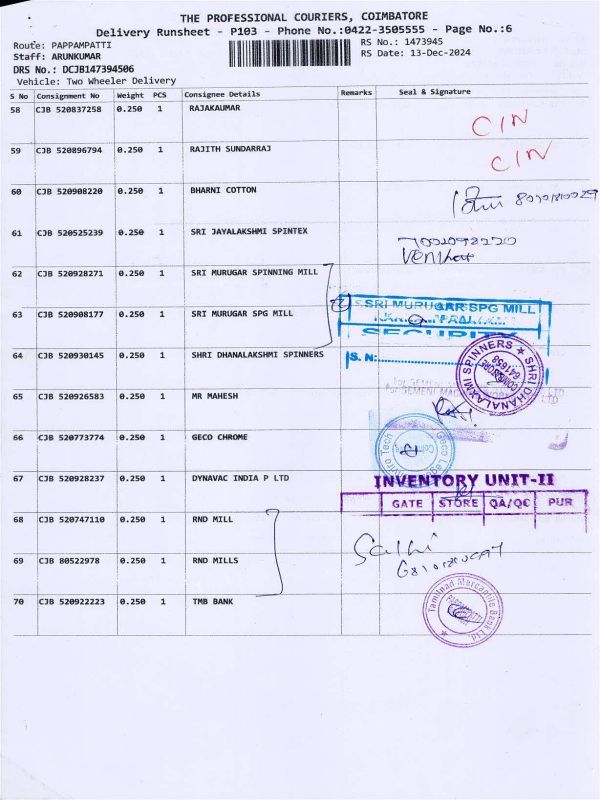 THE PROFESSIONAL COURIERS, COIMBATORE
Delivery Runsheet - P103 - Phone No.:0422-3505555 - Page No.:6
Route: PAPPAMPATTI
RS No.: 1473945
Staff: ARUNKUMAR
RS Date: 13-Dec-2024
DRS No.: DCJB147394506
Vehicle: Two Wheeler Delivery
S No Consignment No Weight PCS Consignee Details Remarks Seal & Signature
58 CJB 520837258 0.250 1 RAJAKAUMAR
CIN
59 CJB 520896794 0.250 1 RAJITH SUNDARRAJ
CIN
60 CJB 520908220 0.250 1 BHARNI COTTON
61 CJB 520525239 0.250 1 SRI JAYALAKSHMI SPINTEX
Venkat
62 CJB 520928271 0.250 1 SRI MURUGAR SPINNING MILL
63 CJB 520908177 0.250 1 SRI MURUGAR SPG MILL
SRI MURUGAR SPG MILL
SECURITY
64 CJB 520930145 0.250 1 SHRI DHANALAKSHMI SPINNERS
S. N:
SHRI DHANALAXMI SPINNERS
COIMBATORE
641658
65 CJB 520926583 0.250 1 MR MAHESH
66 CJB 520773774 0.250 1 GECO CHROME
67 CJB 520928237 0.250 1 DYNAVAC INDIA P LTD
INVENTORY UNIT-II
GATE STORE QA/QC PUR
68 CJB 520747110 0.250 1 RND MILL
69 CJB 80522978 0.250 1 RND MILLS
70 CJB 520922223 0.250 1 TMB BANK
Tamilnad Mercantile Bank Ltd.